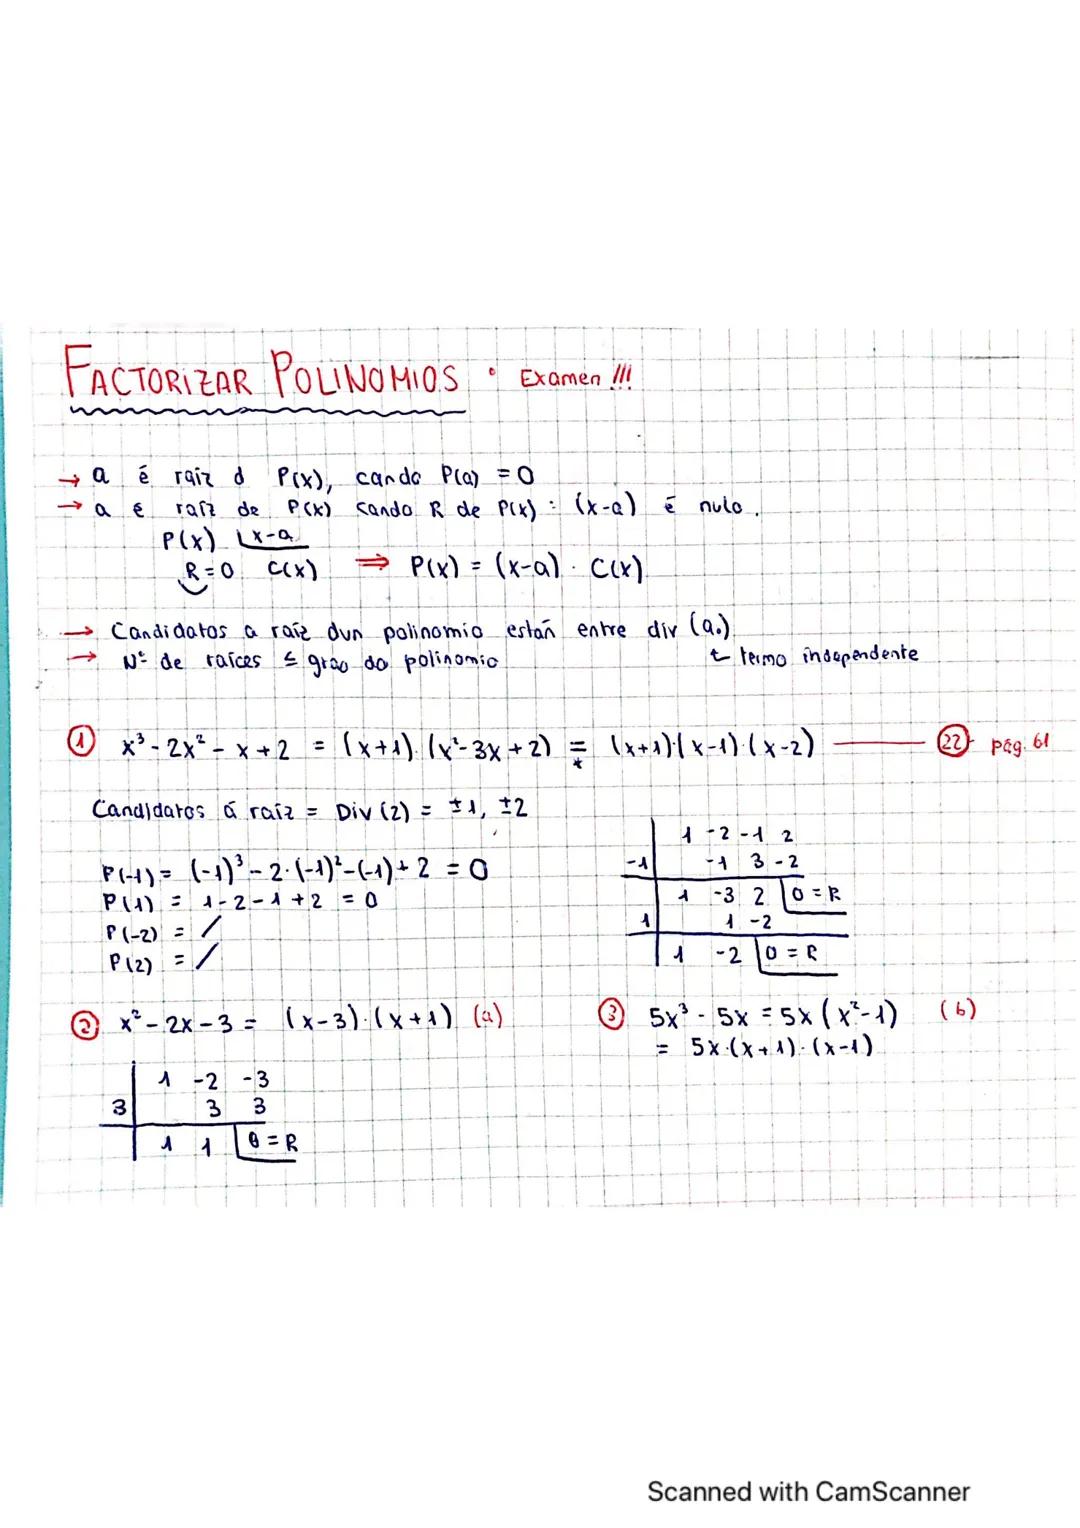 FACTORIZAR POLINOMIOS • Examen !!!
→ a é raíz d P(x), cando P(a) = 0
→ a é raíz de P(x) cando R de P(x) : (x-a) é nulo.
P(x) | x-a
R=0 C(x) ⇒ P(x) = (x-a) · C(x)
→ Candidatos a raíz dun polinomio están entre div (a₀)
→ Nº de raíces ≤ grao do polinomio
t termo independente
① x³ - 2x² - x + 2 = (x+1)·(x²-3x+2) = (x+1)·(x-1)·(x-2) — 22 pág. 61
*
Candidatos á raíz = Div (2) = ±1, ±2
P(-1) = (-1)³ - 2·(-1)² - (-1) + 2 = 0
P(1) = 1 - 2 - 1 + 2 = 0
P(-2) = /
P(2) = /
1 -2 -1 2
-1 | -1 3 -2
1 -3 2 |0 = R
1 | 1 -2
1 -2 |0 = R
② x² - 2x - 3 = (x-3)·(x+1) (a)
1 -2 -3
3 | 3 3
1 1 |0 = R
③ 5x³ - 5x = 5x (x²-1) (b)
= 5x·(x+1)·(x-1)
Scanned with CamScanner